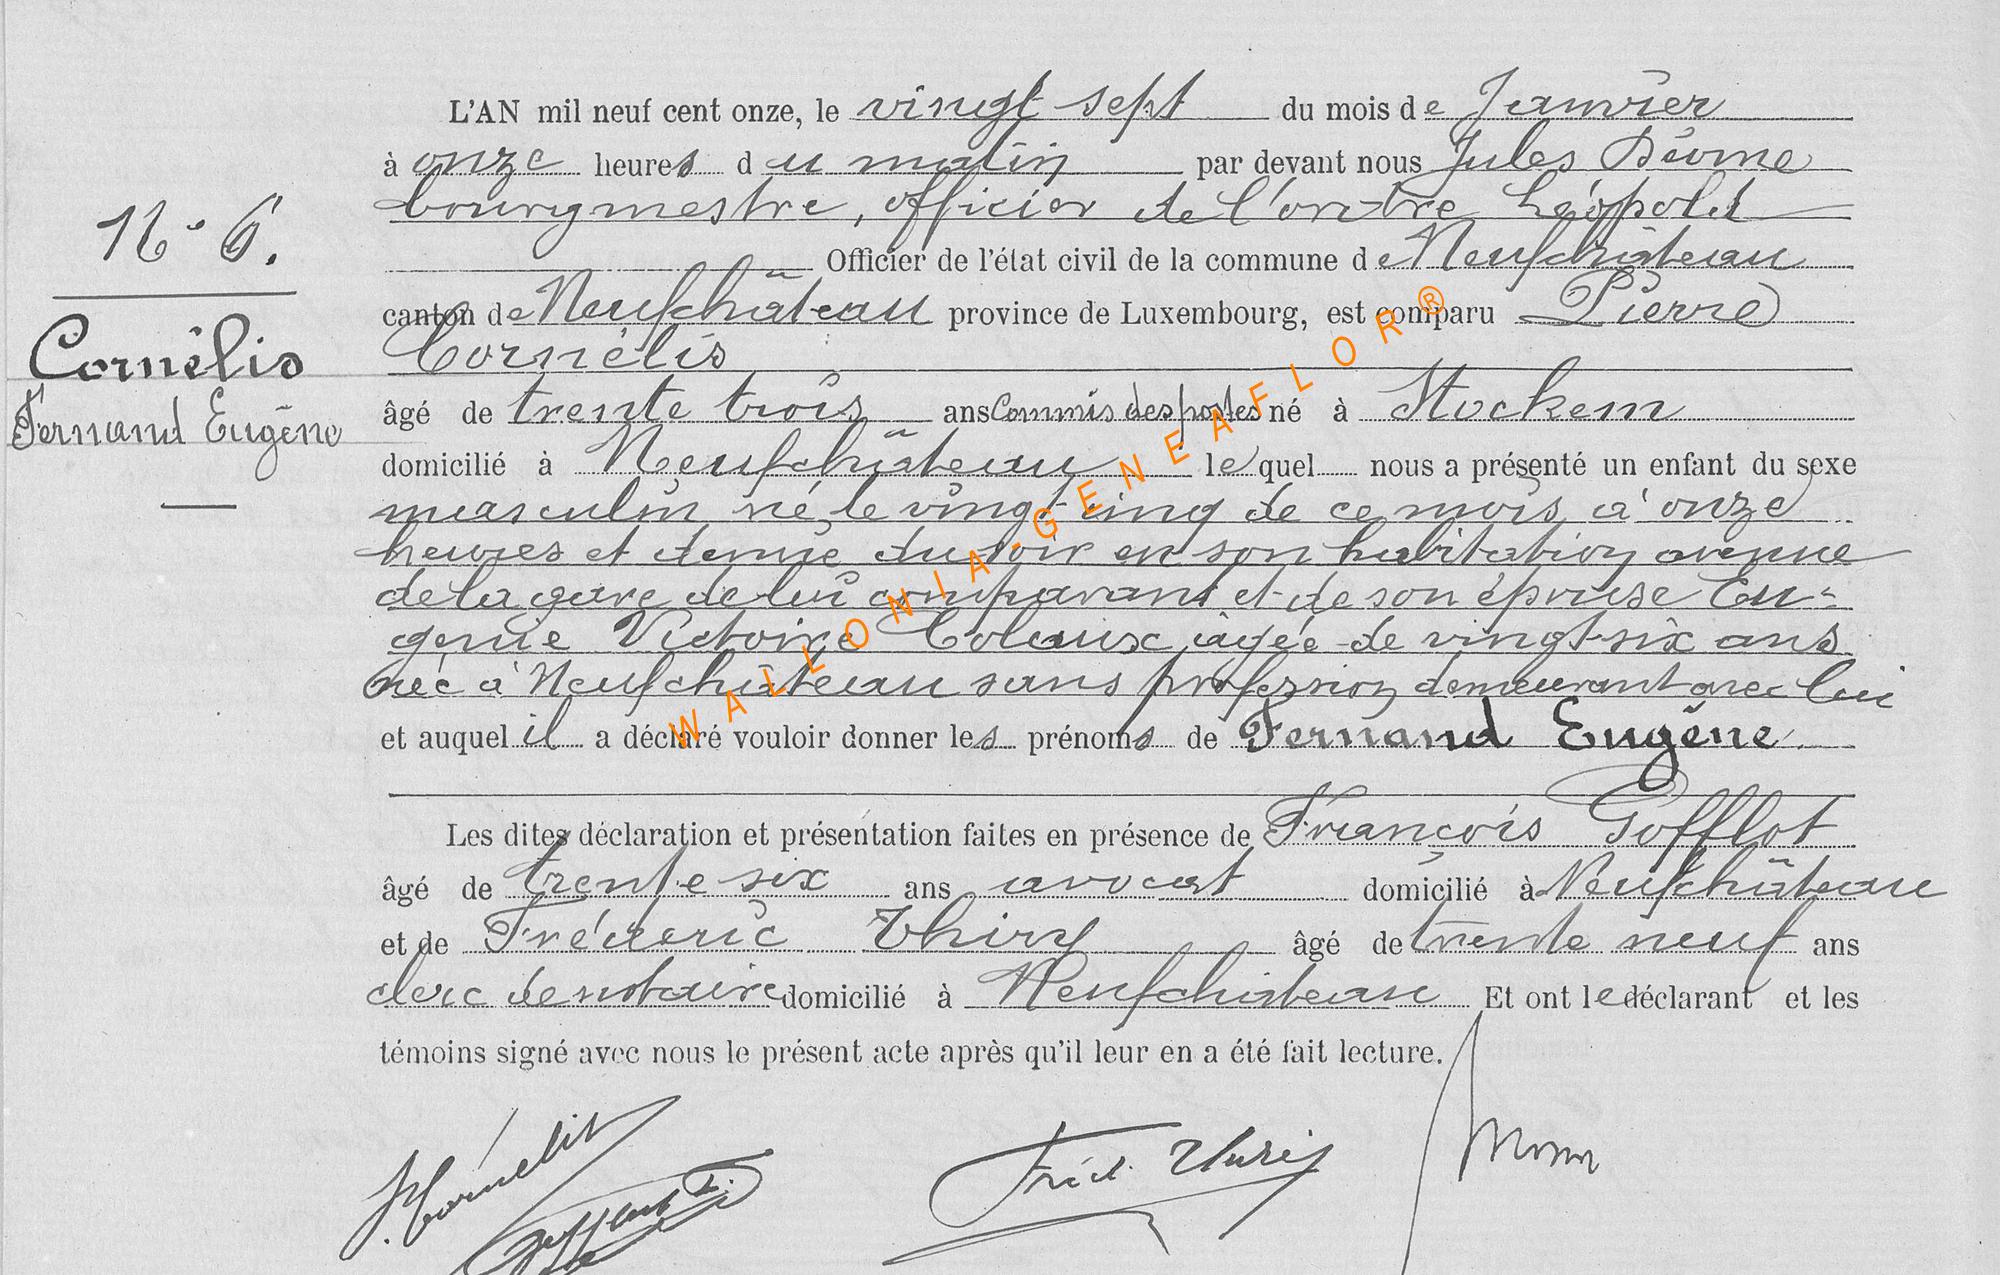 L'AN mil neuf cent onze, le vingt sept du mois de Janvier
à onze heures du matin par devant nous Jules
bourgmestre, officier de l'ordre Léopold
Officier de l'état civil de la commune de Neufchâteau
N° 6.
canton de Neufchâteau province de Luxembourg, est comparu Pierre
Cornélis
Cornélis
Fernand Eugène
âgé de trente trois ans commis des postes né à Stockem
domicilié à Neufchâteau lequel nous a présenté un enfant du sexe
masculin né le vingt cinq de ce mois à onze
heures et demie du soir en son habitation avenue
de la gare de lui comparant et de son épouse Eu-
génie Victoire Colaux, âgée de vingt-six ans
née à Neufchâteau sans profession demeurant avec lui
et auquel il a déclaré vouloir donner les prénoms de Fernand Eugène.
Les dites déclaration et présentation faites en présence de François Gofflot
âgé de trente six ans avocat domicilié à Neufchâteau
et de Fréderic Thiry âgé de trente neuf ans
clerc de notaire domicilié à Neufchâteau Et ont le déclarant et les
témoins signé avec nous le présent acte après qu'il leur en a été fait lecture.
P. Cornélis
Fréd. Thiry
WALLONIA-GENEAFLOR®